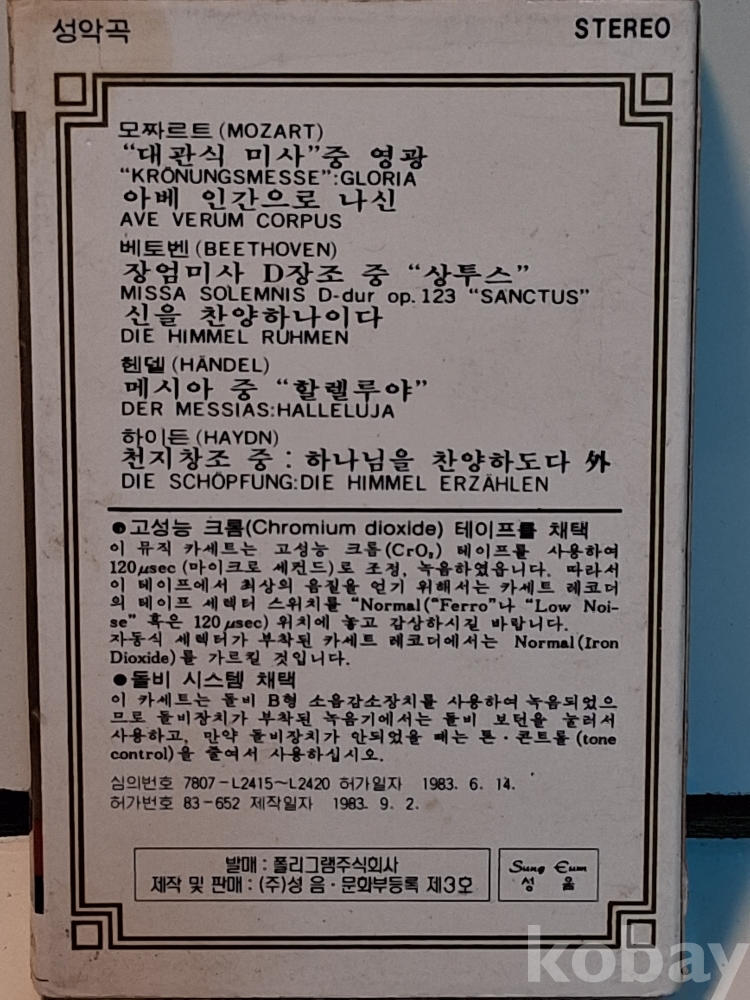 성악곡
STEREO
모짜르트 (MOZART)
“대관식 미사”중 영광
“KRÖNUNGSMESSE”:GLORIA
아베 인간으로 나신
AVE VERUM CORPUS
베토벤 (BEETHOVEN)
장엄미사 D장조 중 “상투스”
MISSA SOLEMNIS D-dur op. 123 “SANCTUS”
신을 찬양하나이다
DIE HIMMEL RUHMEN
헨델 (HÄNDEL)
메시아 중 “할렐루야”
DER MESSIAS:HALLELUJA
하이든 (HAYDN)
천지창조 중 : 하나님을 찬양하도다 外
DIE SCHÖPFUNG:DIE HIMMEL ERZÄHLEN
●고성능 크롬(Chromium dioxide) 테이프를 채택
이 뮤직 카세트는 고성능 크롬(CrO₂) 테이프를 사용하여
120μsec (마이크로 세컨드)로 조정, 녹음하였읍니다. 따라서
이 테이프에서 최상의 음질을 얻기 위해서는 카세트 레코더
의 테이프 세렉터 스위치를 “Normal(“Ferro”나 “Low Noi-
se” 혹은 120μsec) 위치에 놓고 감상하시길 바랍니다.
자동식 세렉터가 부착된 카세트 레코더에서는 Normal(Iron
Dioxide)를 가르킬 것입니다.
●돌비 시스템 채택
이 카세트는 돌비 B형 소음감소장치를 사용하여 녹음되었으
므로 돌비장치가 부착된 녹음기에서는 돌비 보턴을 눌러서
사용하고, 만약 돌비장치가 안되었을 때는 톤·콘트롤 (tone
control)을 줄여서 사용하십시오.
심의번호 7807-L2415~L2420 허가일자 1983. 6. 14.
허가번호 83-652 제작일자 1983. 9. 2.
발매 : 폴리그램주식회사
제작 및 판매 : (주)성 음·문화부등록 제3호
Sung Eum
성 음
kobay